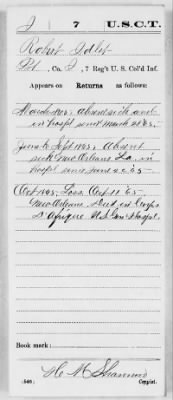 I 7 U.S.C.T.
Robert Idlet
Pvt., Co. I, 7 Reg't U.S. Col'd Inf.
Appears on Returns as follows:
March 1865, Absent sick and
in hospl since March 21/65.
June to Sept 1865, Absent
sick New Orleans La. in
hospl since June 22/65
Oct 1865, Loss. Oct 11/65
New Orleans Died in Corps
D'Afrique U.S. Gen Hospl.
Book mark:
H. M. Shannon
(546) Copyist.